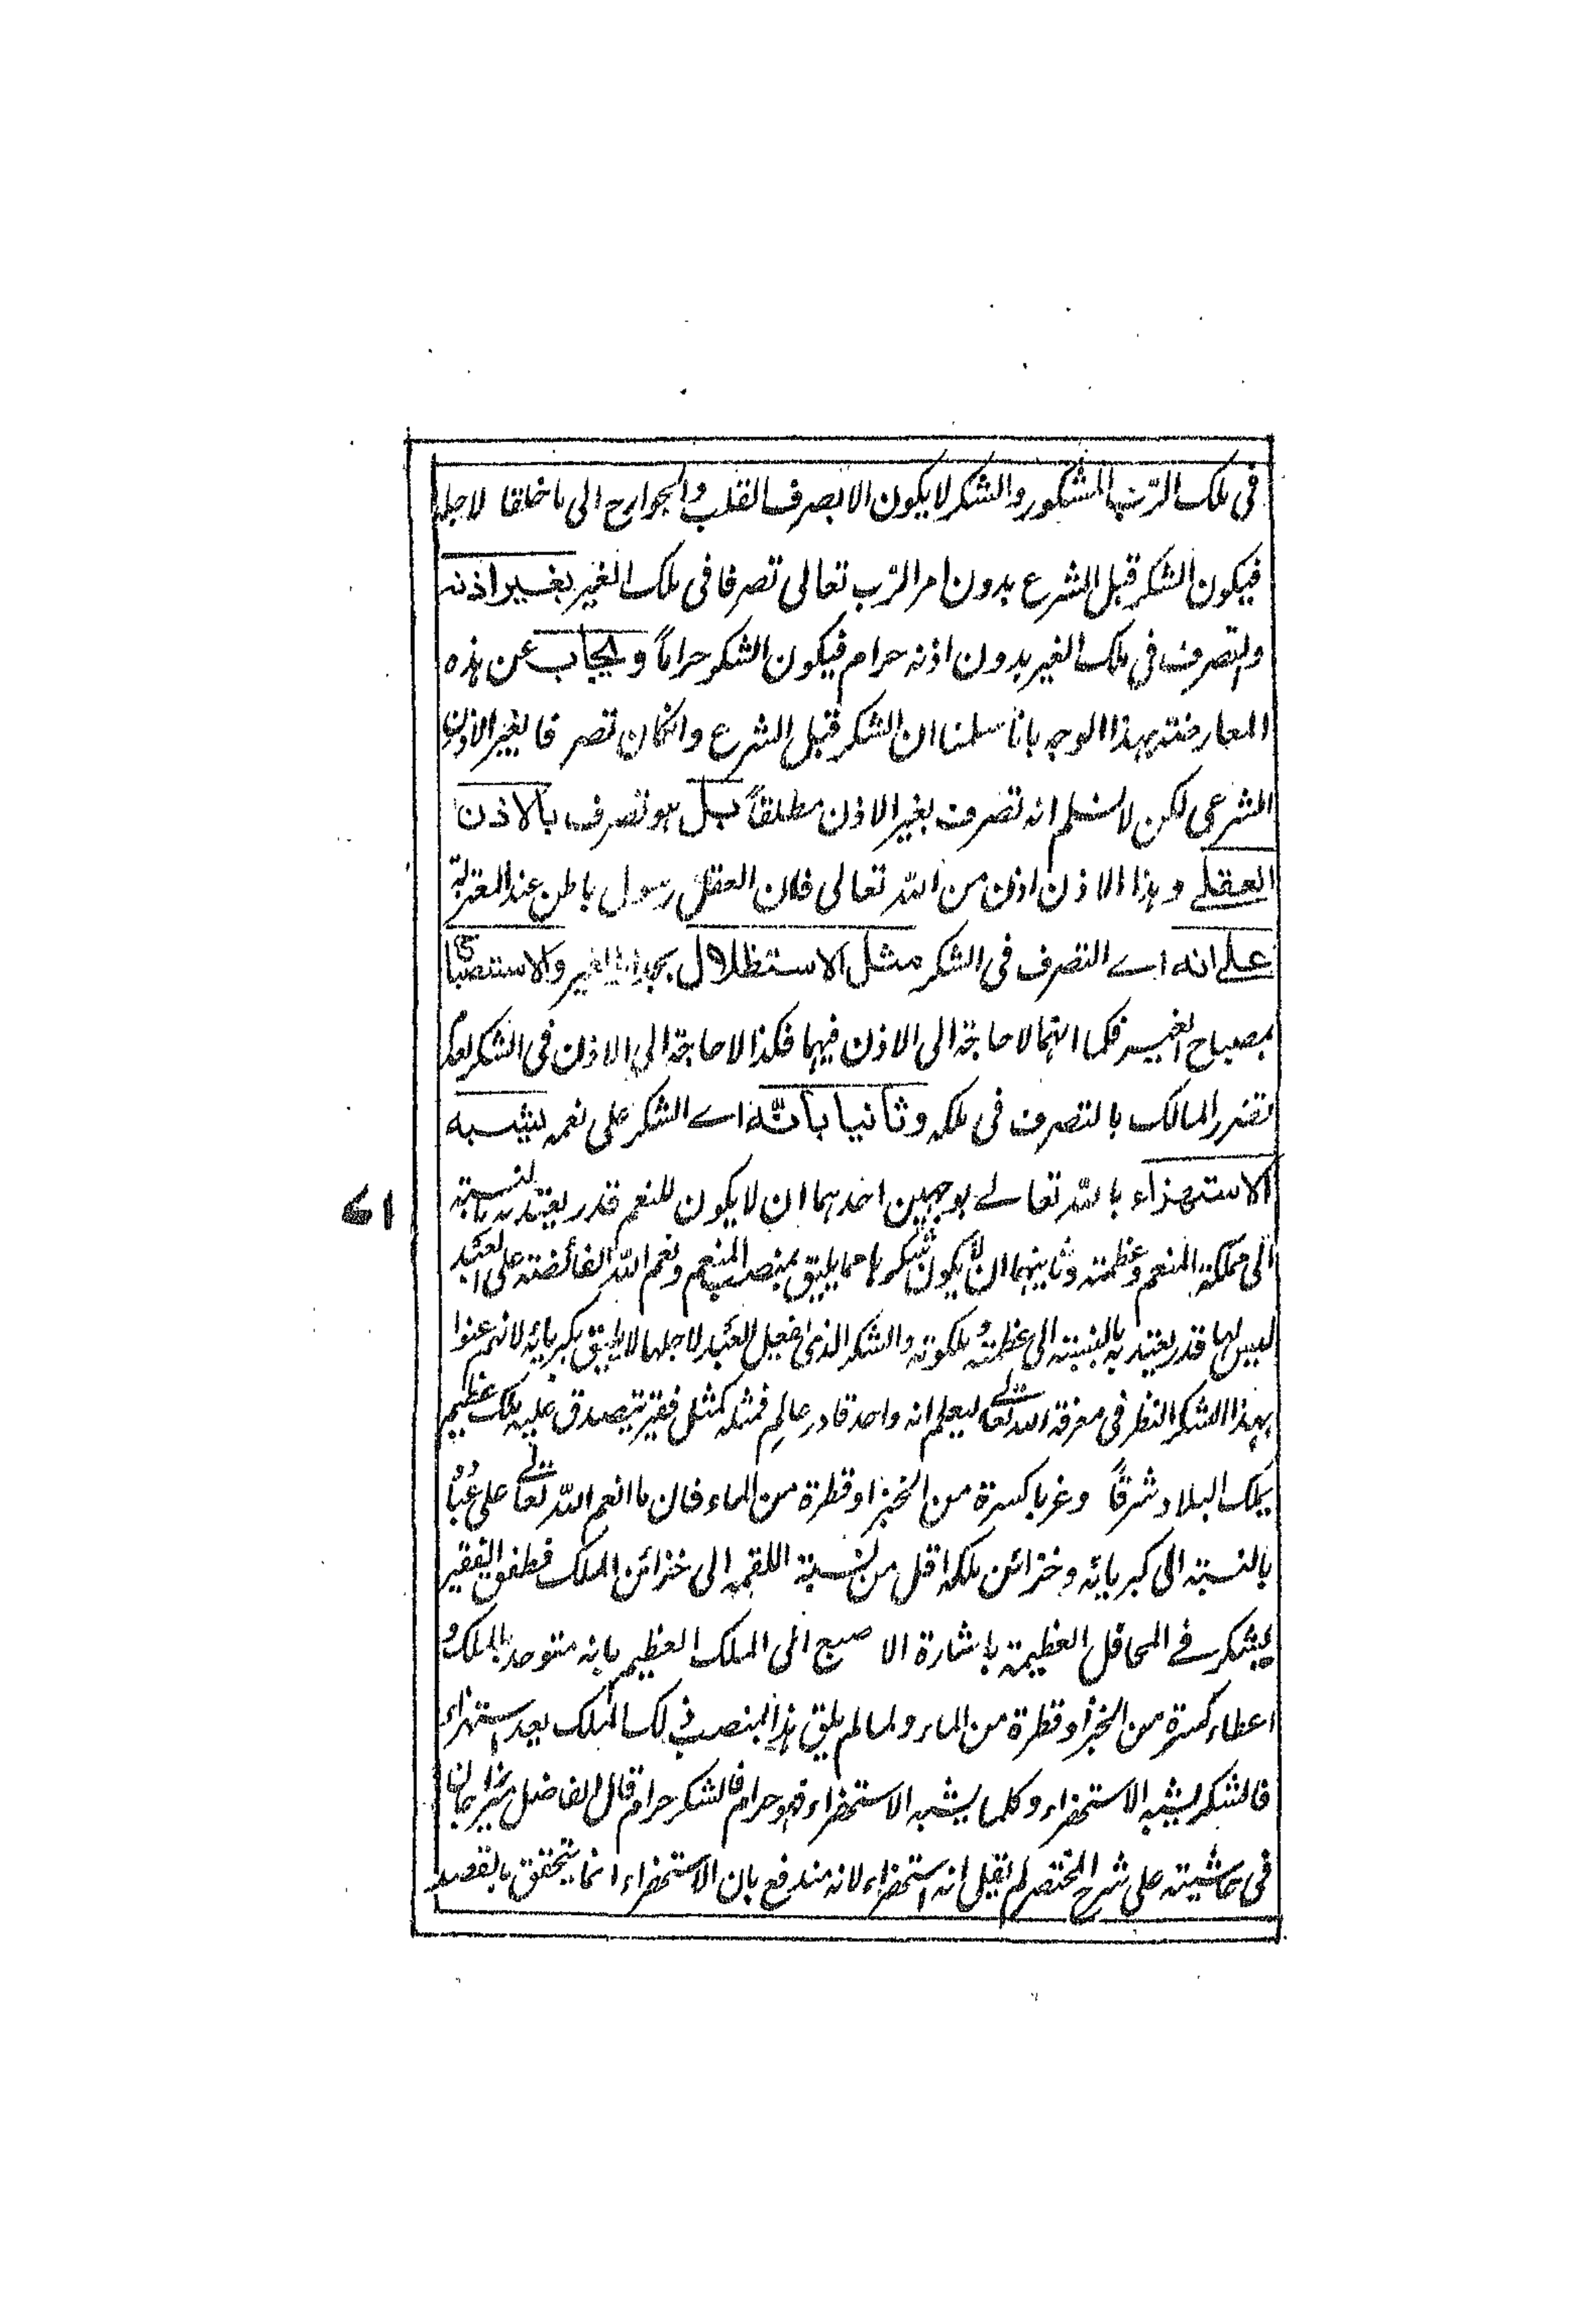 فى ملك الرّب المشكور والشكر لا يكون الا بصرف القلب والجوارح الى ما خلقا لاجله
فيكون الشكر قبل الشرع بدون امر الرّب تعالى تصرفا فى ملك الغير بغير اذنه
والتصرف فى ملك الغير بدون اذنه حرام فيكون الشكر حراماً ويجاب عن هذه
المعارضة بهذا الوجه بانا سلمنا ان الشكر قبل الشرع وانكان تصرفا بغير الاذن
الشرعى لكن لا نسلم انه تصرف بغير الاذن مطلقاً بل هو تصرف بالاذن
العقلے وهذا الاذن اذن من اللّه تعالى فان العقل رسول باطن عند المعتزلة
علے انه اے التصرف فى الشكر مثل الاستظلال بجدار الغير والاستصباح
بمصباح الغير فكما انهما لا حاجة الى الاذن فيهما فكذا لا حاجة الى الاذن فى الشكر لعدم
تضرر المالك بالتصرف فى ملكه وثانيا بانّه اے الشكر على نعمه يشبه
الاستهزاء باللّه تعالے بوجهين احدهما ان لا يكون للنعم قدر يعتد به بالنسبة
الى مملكة المنعم وعظمته وثانيهما ان لا يكون شكرها مما يليق بمنصب المنعم ونعم اللّه الفائضة على العبد
ليس لها قدر يعتد به بالنسبة الى عظمته وملكوته والشكر الذى افعل العبد لاجلها لا يليق بكبريائه لانهم عنوا
بهذا الشكر النظر فى معرفة اللّه تعالے ليعلم انه واحد قادر عالم فمثله كمثل فقير تيصدق عليه ملك عظيم
يملك البلاد شرقاً وغربا كسرة من الخبز او قطرة من الماء فان ما انعم اللّه تعالے على عباده
بالنسبة الى كبريائه وخزائن ملكه اقل من نسبة اللقمه الى خزائن الملك فطفق الفقير
يشكر فے المحافل العظيمة باشارة الاصبع الى الملك العظيم بانه متوحد بالملك و
اعطاء كسرة من الخبز او قطرة من الماء ولما لم يلق هذا بمنصب ذلك الملك يعد استهزاء
فالشكر يشبه الاستهزاء وكلما يشبه الاستهزاء فهو حرام فالشكر حرام قال الفاضل ميرزا جان
فى حاشيته على شرح المختصر لم يقل انه استهزاء لانه مندفع بان الاستهزاء انما يتحقق بالقصد
٤١